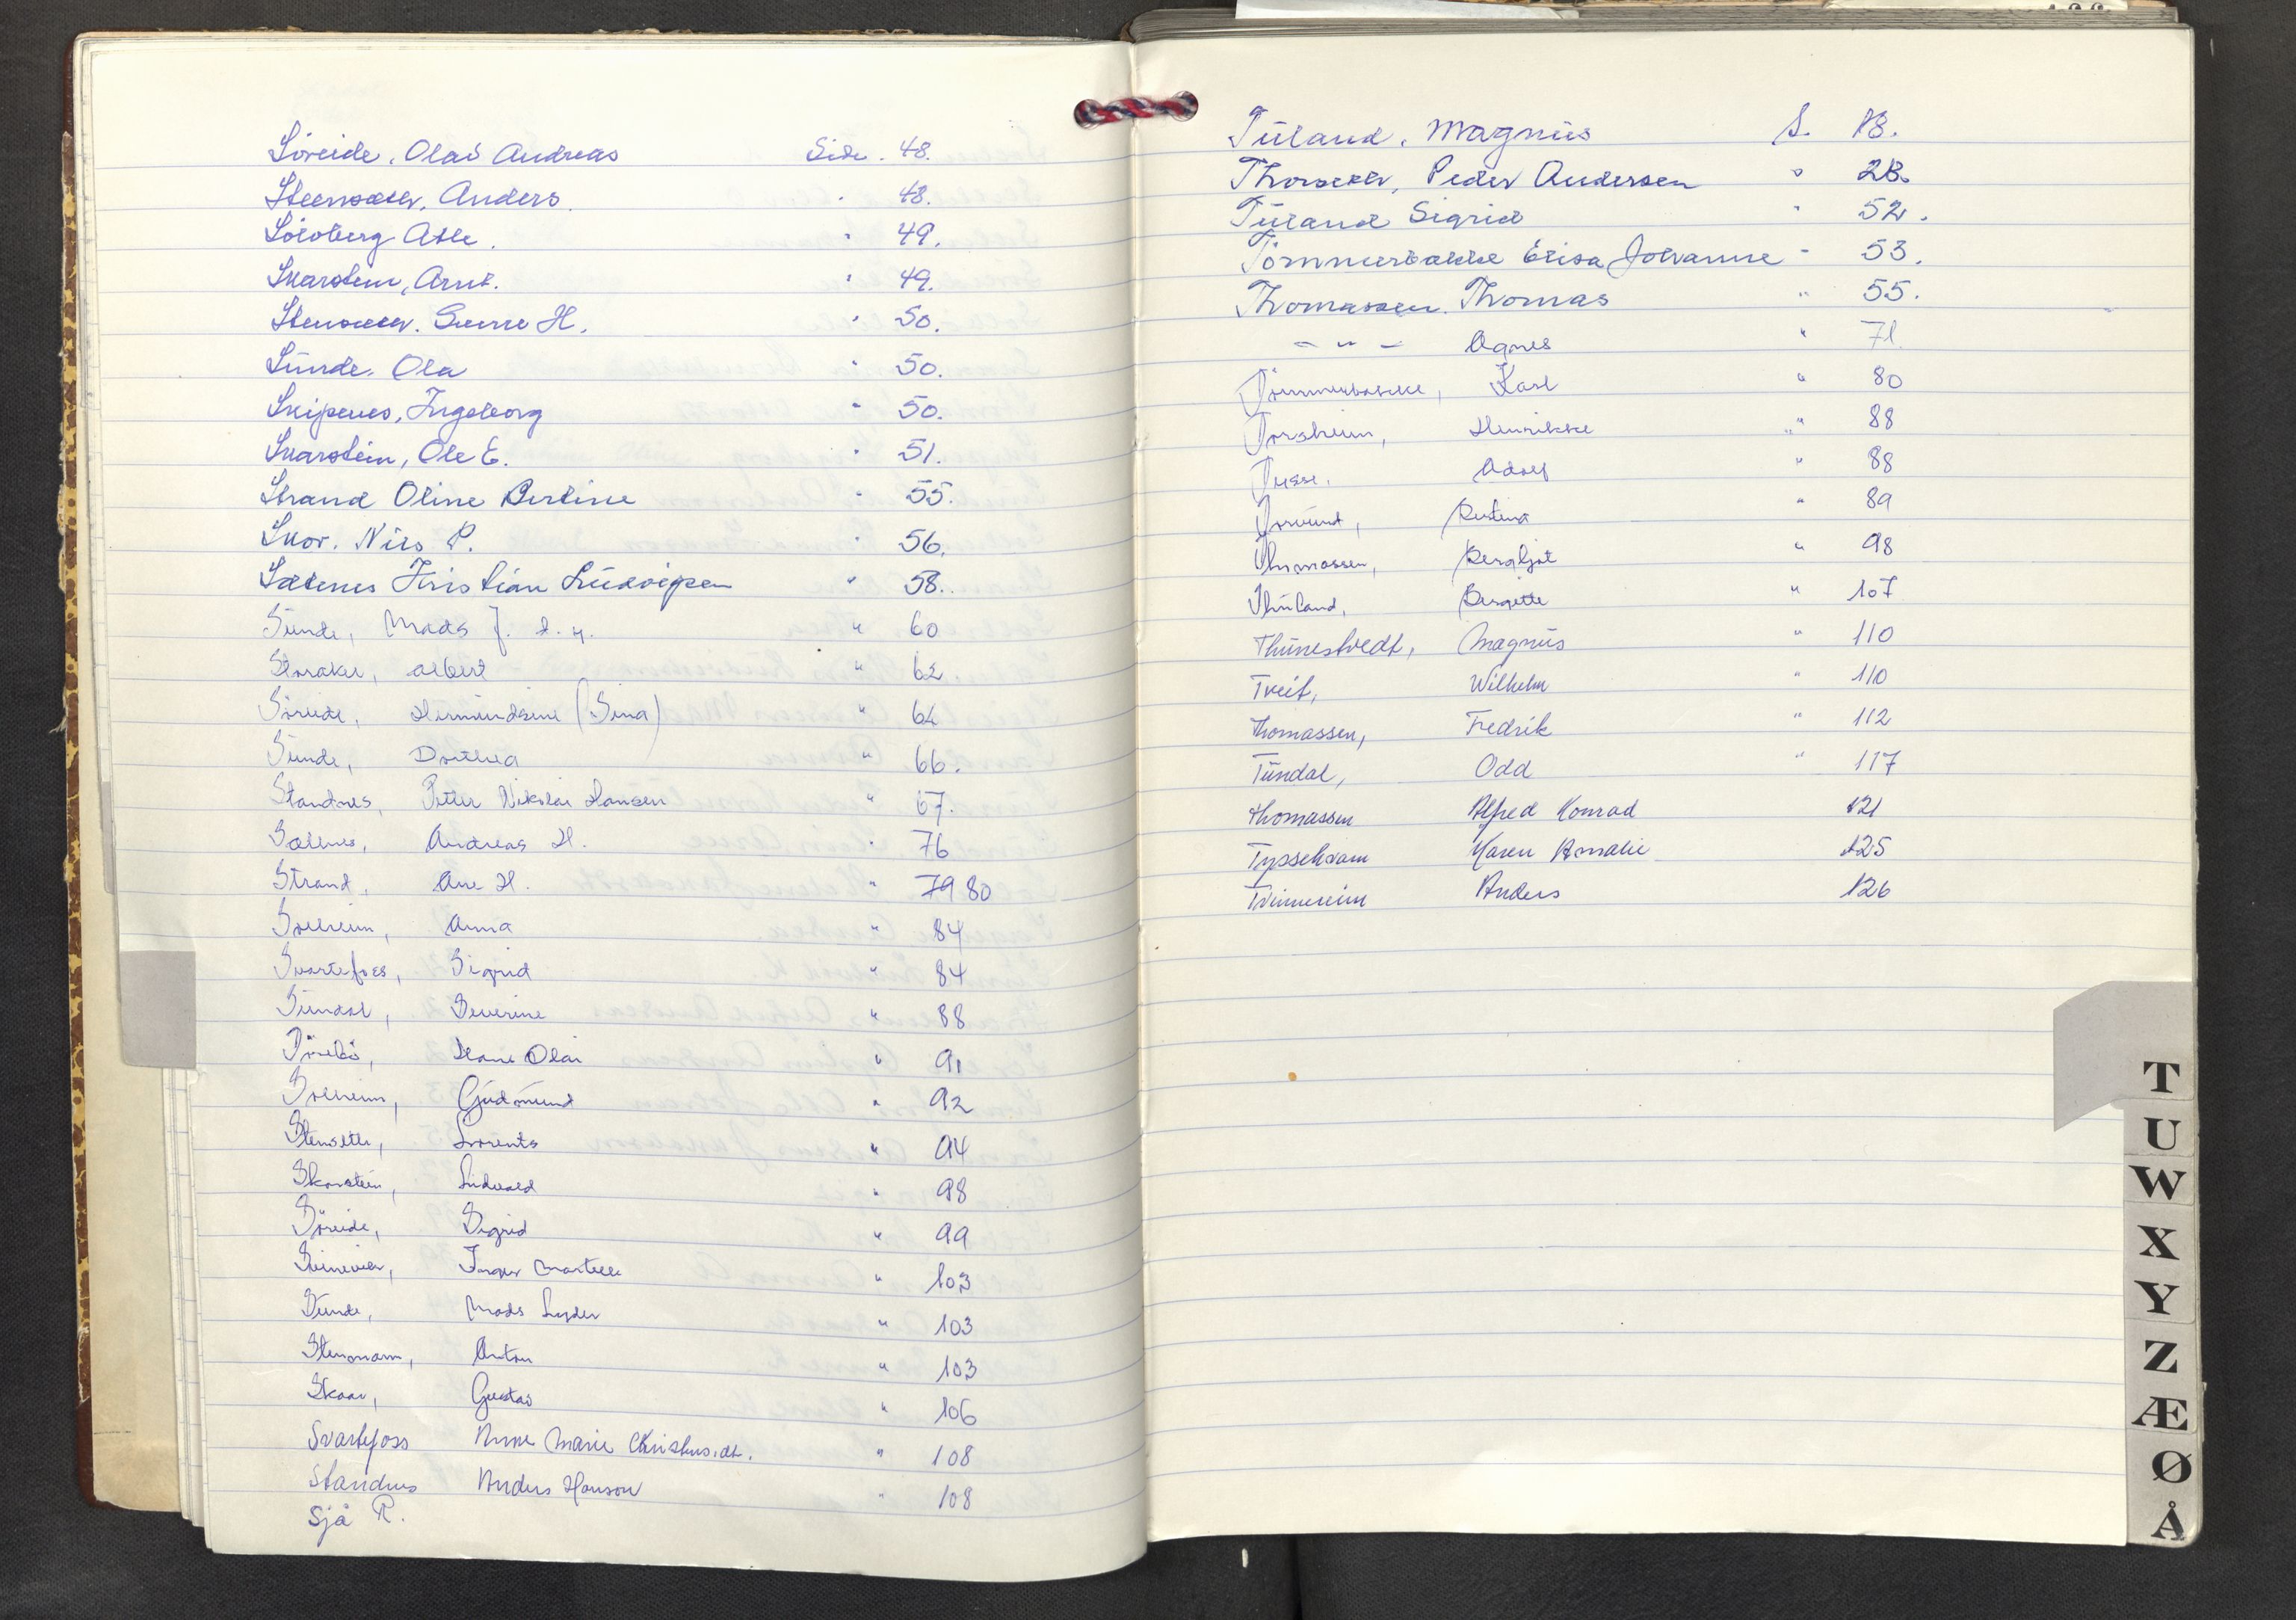 Söreide, Olai Andreas Side. 48.
Stensæter, Anders. " 48.
Solvberg Atle. " 49.
Skarstein, Arnt. " 49.
Stensæter. Sverre H. " 50.
Sünde, Ola " 50.
Skipenes, Ingeborg " 50.
Skarstein, Ole E. " 51.
Strand Oline Bertine " 55.
Skor. Nils P. " 56.
Sætenes Kristian Lüdvigsen " 58.
Sünde, Mads J. d. y. " 60
Storaker, Albert " 62.
Söreide, Hermündsine (Sina) " 64
Sünde, Dorthea " 66.
Standnes, Petter Nikolai Hansen " 67.
Sætenes, Andreas H. " 76
Strand, Ane H. " 79 80
Solheim, Anna " 84
Svartefoss, Sigrid " 84
Sündal, Severine " 88
Sörebö, Hans Olai " 91
Solheim, Güdmünd " 92
Stensæter, Lorents " 94
Skarstein, Lidvald " 98
Söreide, Sigrid " 99
Inger Martelle " 103
Sünde, Mads Lyder " 103
Stenmann, Anton " 103
Skaar, Gustav " 106
Svartefoss Anne Marie Christensdt. " 108
Standnes Anders Hanson " 108
Sjå R.
Tüland, Magnüs S. 18.
Thorseth, Peder Andersen " 28.
Tüland Sigrid " 52.
Tömmerbakke Elisa Johanne " 53.
Thomassen. Thomas " 55.
– " – Agnes " 71.
Tömmerbakke, Karl " 80
Torsheim, Henrikke " 88
Tusse, Adolf " 88
Torvünd, Bertina " 89
Thomassen, Bergljot " 98
Thüland, Bergitte " 107
Thünestvedt, Magnüs " 110
Tveit, Wilhelm " 110
Thomassen, Fredrik " 112
Tündal, Odd " 117
Thomassen Alfred Konrad 121
Tyssekvam Karen Amalie 125
Tvinnereim Anders 126
T
U
W
X
Y
Z
Æ
Ø
Å